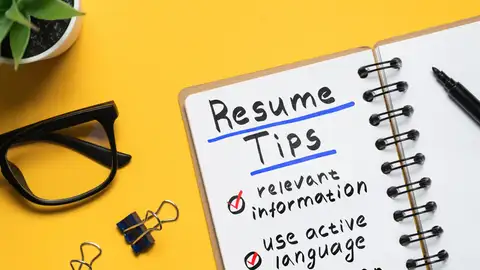 Resume
Tips
relevant
information
use active
language